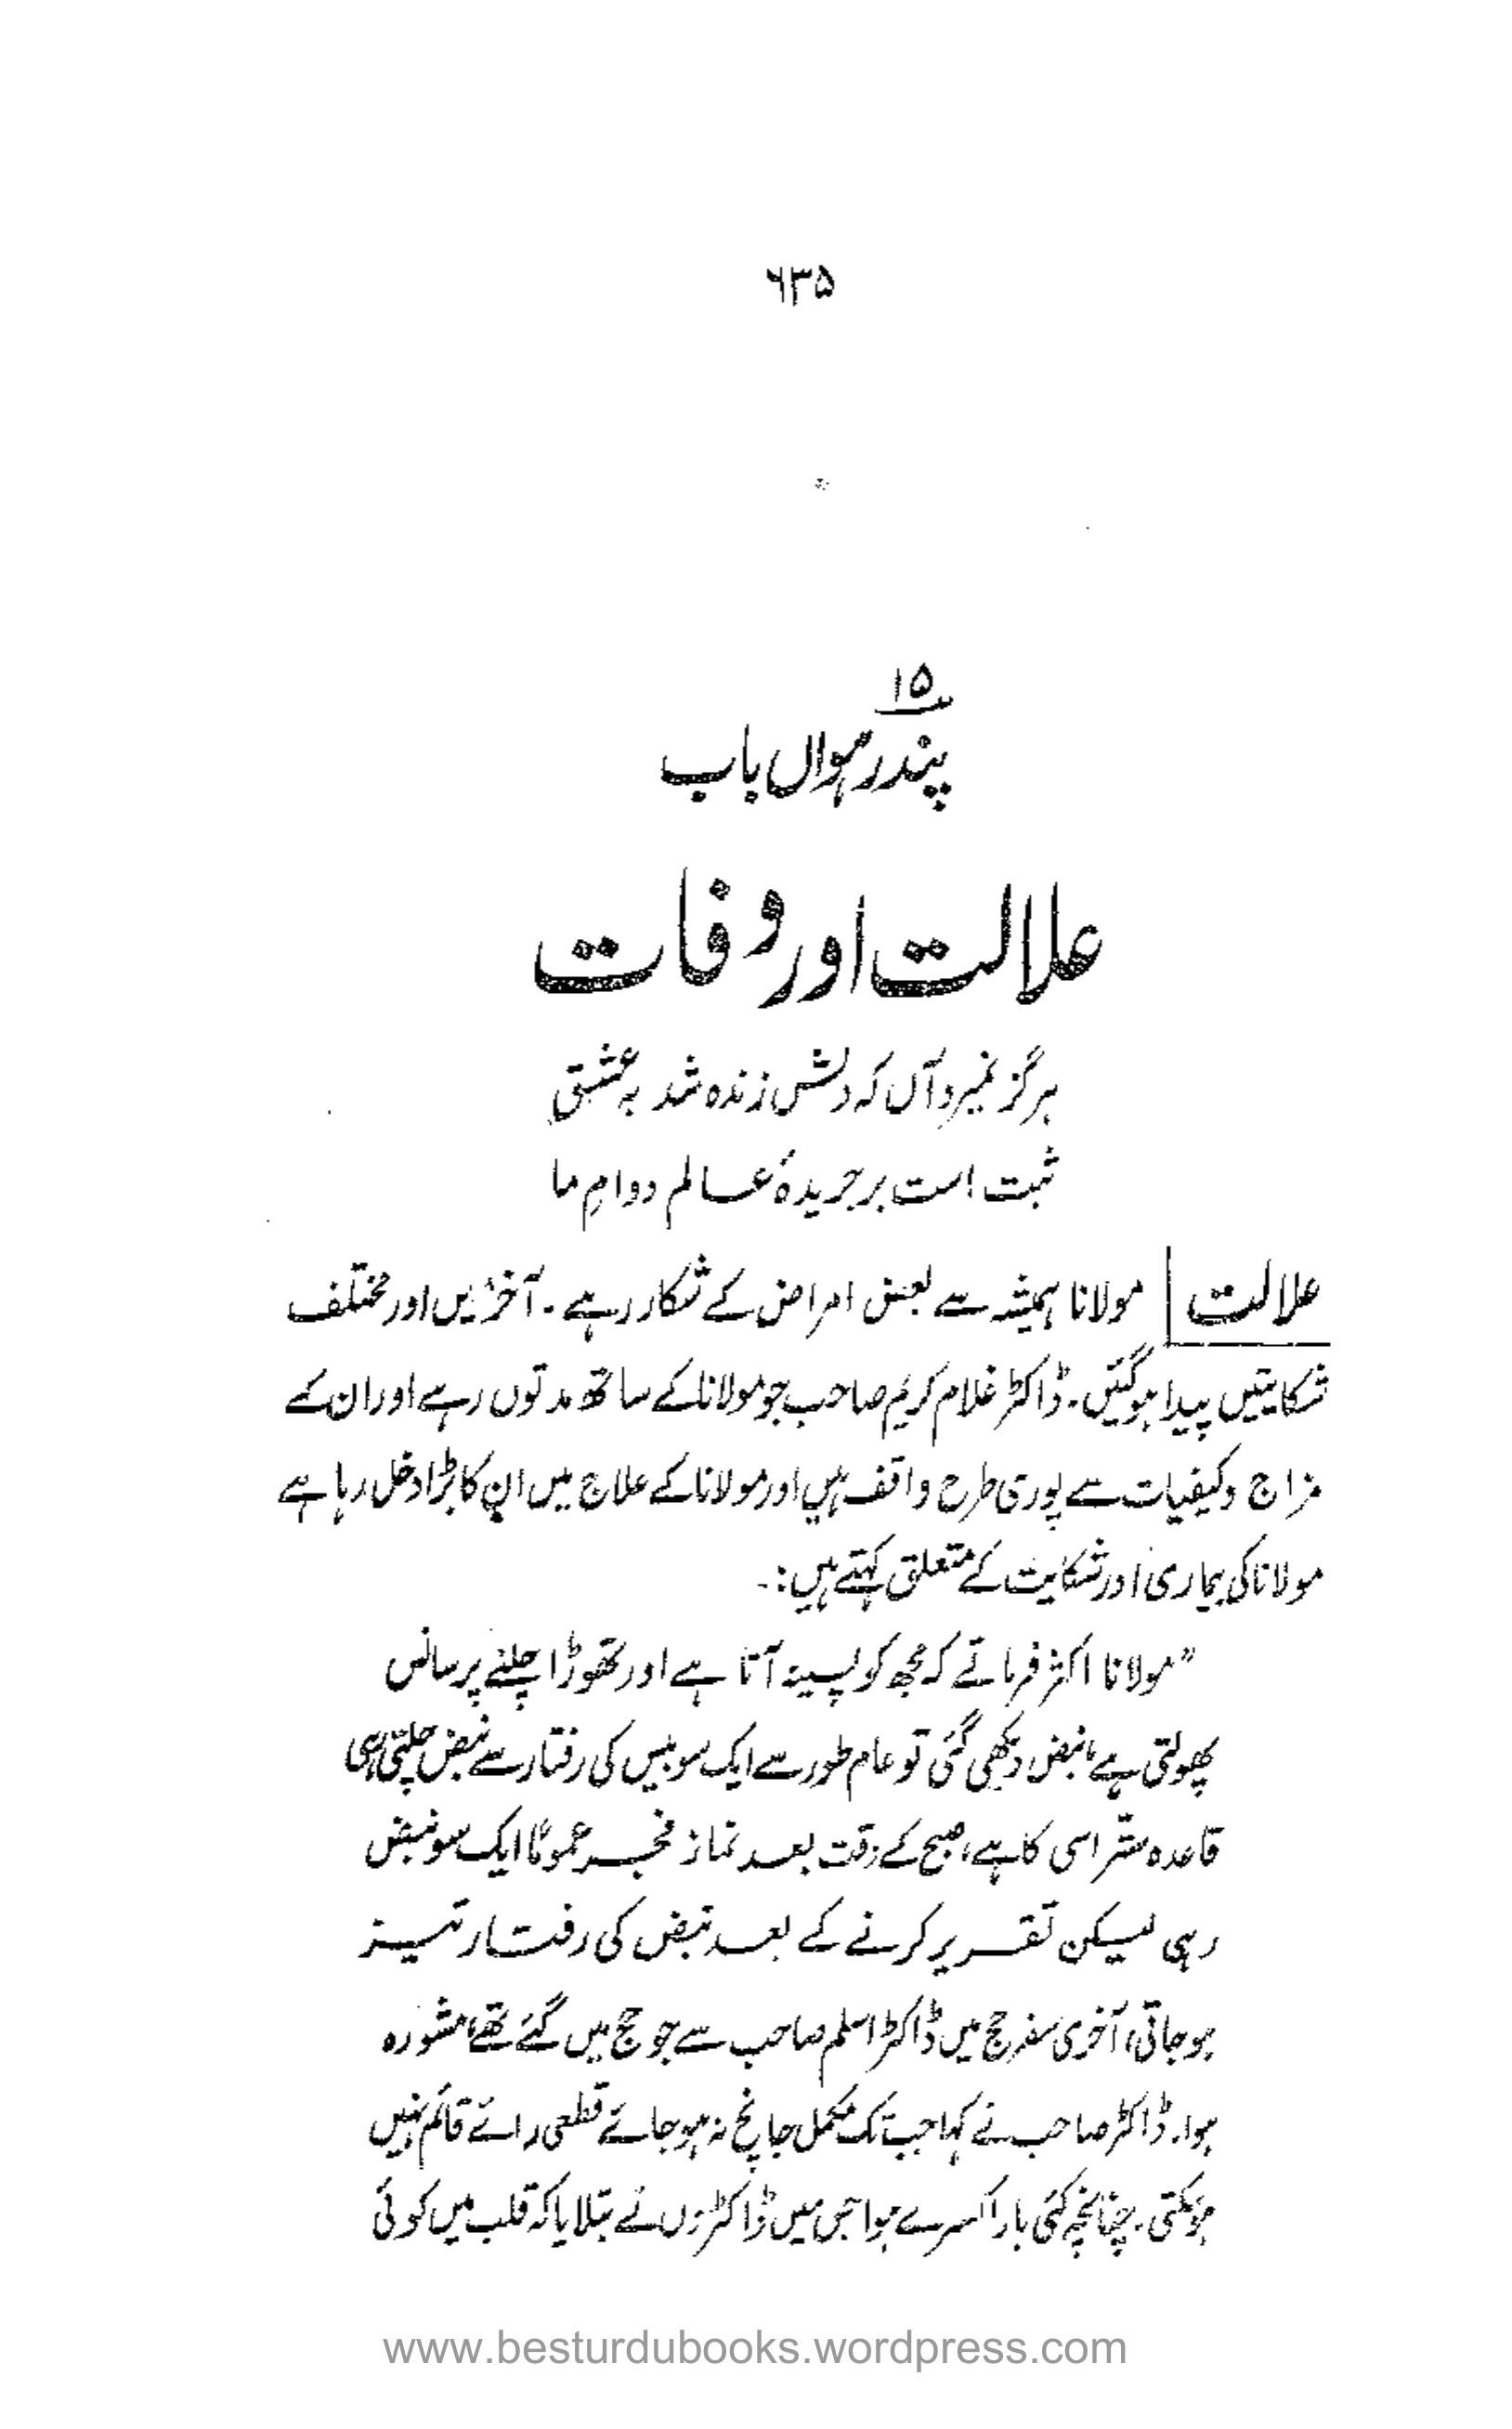 ۶۳۵
۱۵
پندرہواں باب
علالت اور وفات
ہرگز نمیرد آں کہ دلش زندہ شد بہ عشق
ثبت است بر جریدۂ عالم دوامِ ما
علالت | مولانا ہمیشہ سے بعض امراض کے شکار رہے۔ آخر میں اور مختلف
شکایتیں پیدا ہوگئیں۔ ڈاکٹر غلام کریم صاحب جو مولانا کے ساتھ مدتوں رہے اور ان کے
مزاج وکیفیات سے پوری طرح واقف ہیں اور مولانا کے علاج میں ان کا بڑا دخل رہا ہے
مولانا کی بیماری اور شکایت کے متعلق کہتے ہیں:-
"مولانا اکثر فرماتے کہ مجھ کو پسینہ آتا ہے اور تھوڑا چلنے پر سانس
پھولتی ہے، نبض دیکھی گئی تو عام طور سے ایک سو بیس کی رفتار سے نبض چلتی رہی
قاعدہ ستر اسی کا ہے، صبح کے وقت بعد نماز فجر عموماً ایک سو نبض
رہی لیکن تقریر کرنے کے بعد نبض کی رفتار تیز
ہوجاتی، آخری سفر حج میں ڈاکٹر اسلم صاحب سے جو حج میں گئے تھے، مشورہ
ہوا۔ ڈاکٹر صاحب نے کہا جب تک مکمل جانچ نہ ہوجائے قطعی رائے قائم نہیں
ہوسکتی۔ چنانچہ کئی بار اکسرے ہوا جس میں ڈاکٹروں نے بتلایا کہ قلب میں کوئی
www.besturdubooks.wordpress.com